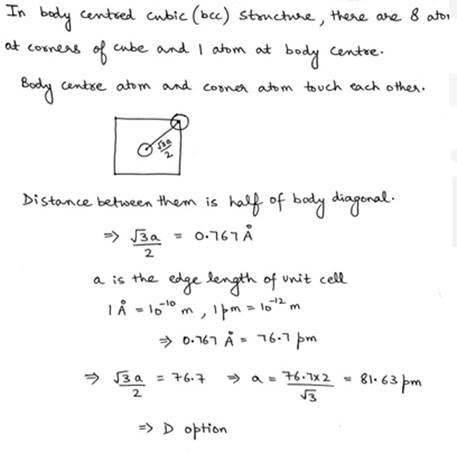 In body centred cubic (bcc) structure, there are 8 ato
at corners of cube and 1 atom at body centre.
Body centre atom and corner atom touch each other.
√3a/2
Distance between them is half of body diagonal.
⇒ √3a/2 = 0.767 Å
a is the edge length of unit cell
1 Å = 10⁻¹⁰ m, 1 pm = 10⁻¹² m
⇒ 0.767 Å = 76.7 pm
⇒ √3a/2 = 76.7 ⇒ a = 76.7×2/√3 = 81.63 pm
⇒ D option